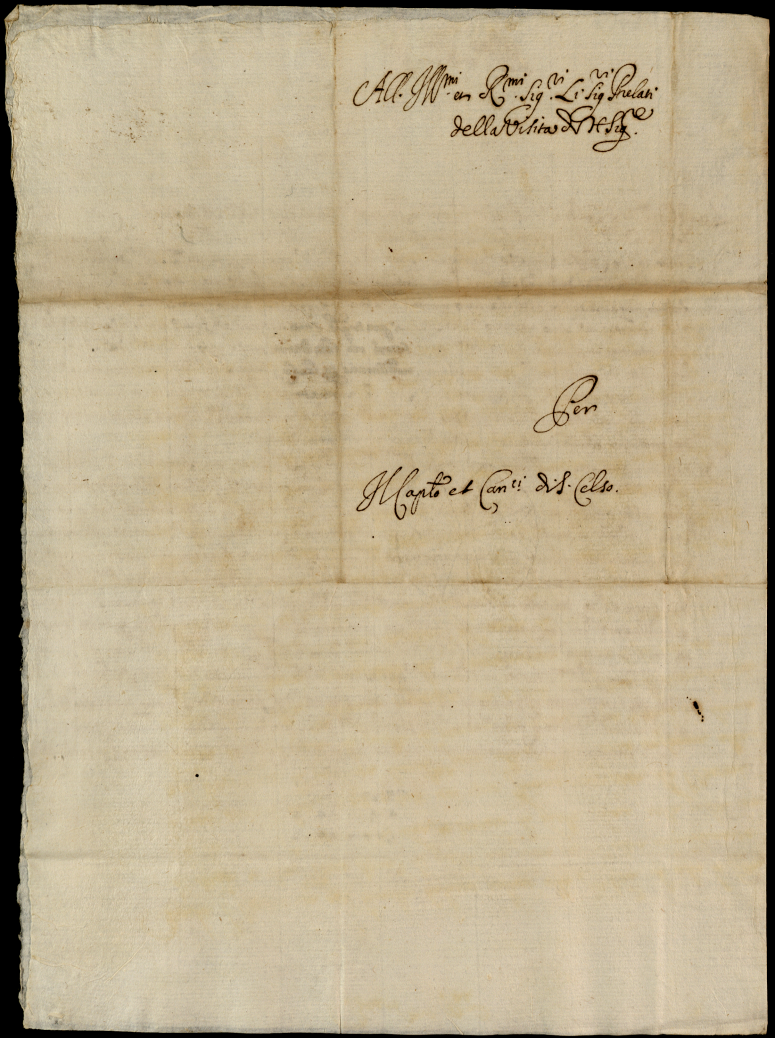 All. Ill.mi et R.mi Sig.ri Li Sig.ri Prelati
della Visita di N Sig.re
Per
Il Capto et Can.ci di S. Celso.